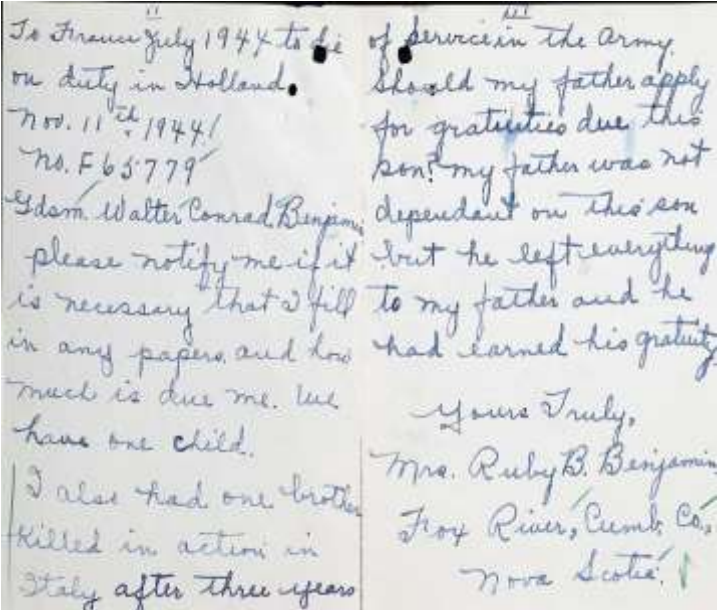 II
To France July 1944 to die
on duty in Holland.
Nov. 11th 1944
No. F65779
Gdsm. Walter Conrad Benjamin
please notify me if it
is necessary that I fill
in any papers. and how
much is due me. We
have one child.
I also had one brother
killed in action in
Italy after three years
III
of service in the Army.
Should my father apply
for gratuities due this
son? my father was not
dependant on this son
but he left everything
to my father and he
had earned his gratuity.
Yours Truly,
Mrs. Ruby B. Benjamin
Fox River, Cumb. Co.,
Nova Scotia.